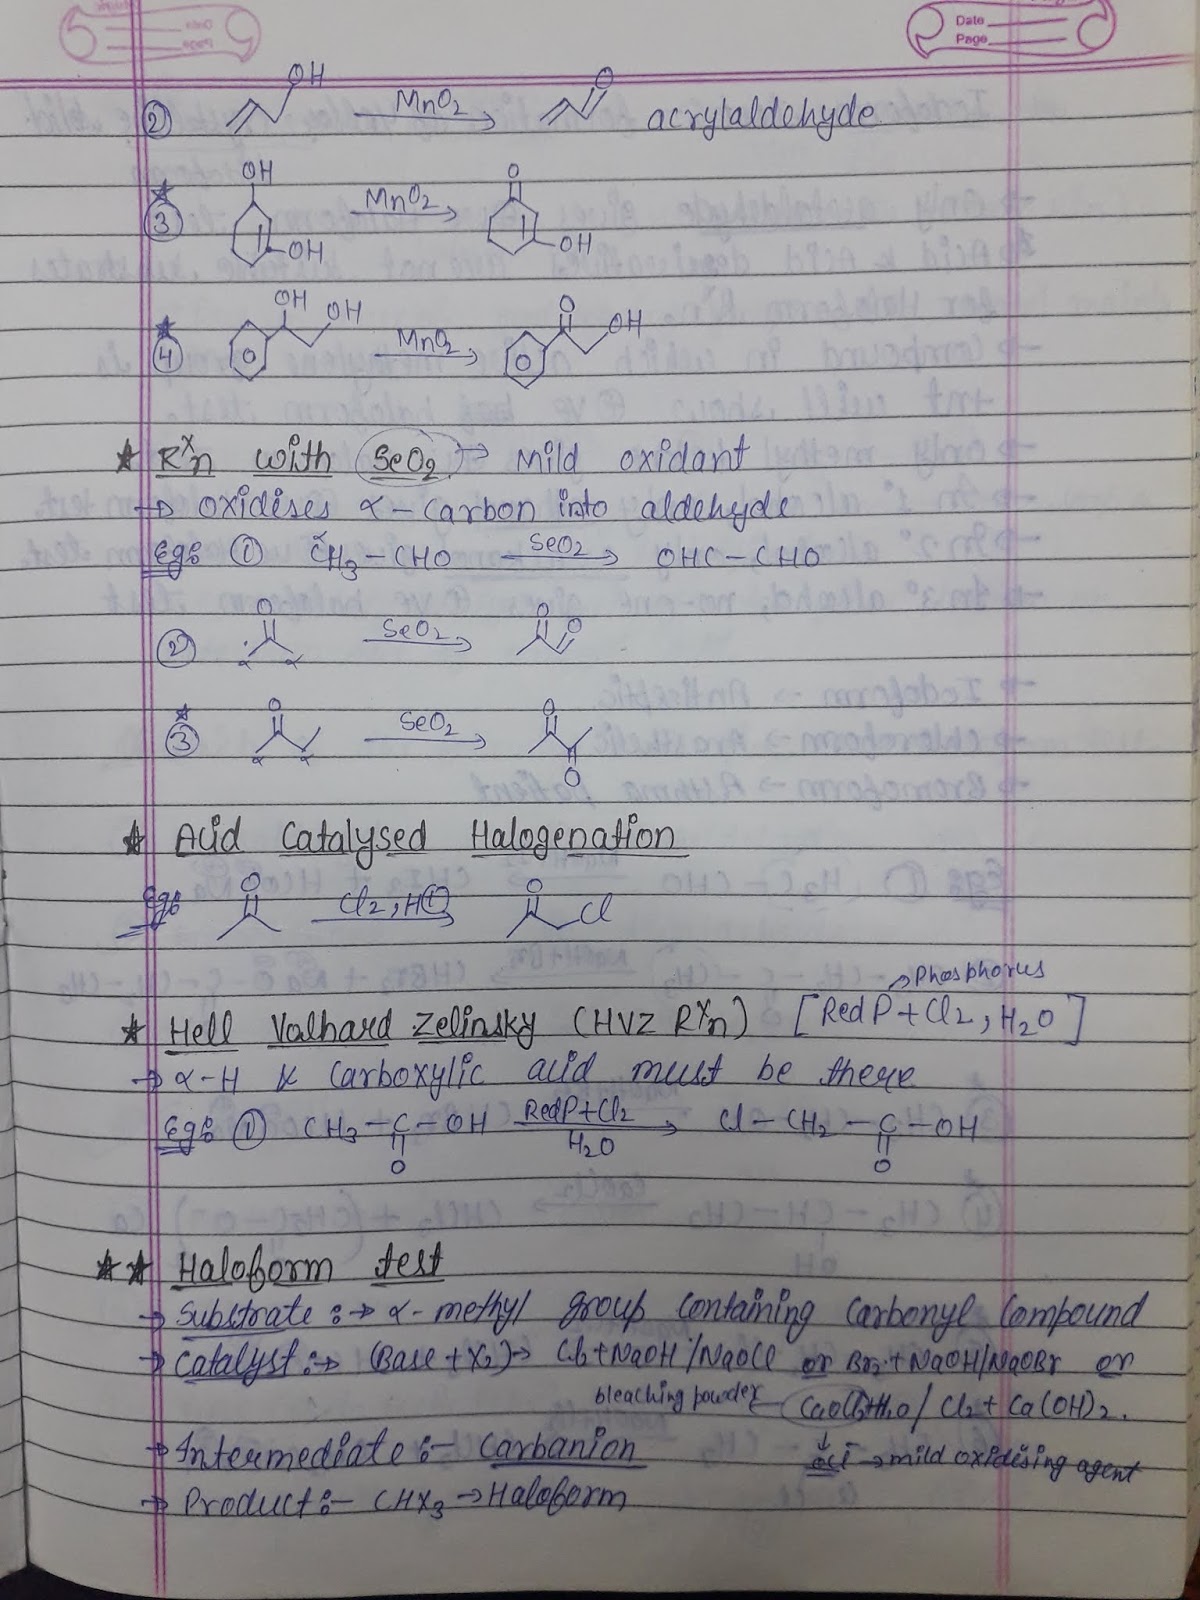 Date
Page
OH
② MnO2 O acrylaldehyde
③ OH OH MnO2 O OH
④ OH OH MnO2 O OH
Rxn with SeO2 → Mild oxidant
→ Oxidises α-Carbon into aldehyde
Egs ① CH3-CHO SeO2 → OHC-CHO
② O α SeO2 → O O
③ O α α SeO2 → O O
Acid Catalysed Halogenation
Egs O Cl2, H⊕ → O Cl
→ Phosphorus
Hell Valhard Zelinsky (HVZ Rxn) [Red P + Cl2, H2O]
→ α-H & Carboxylic acid must be there
Egs ① CH3-C-OH Red P + Cl2 H2O → Cl-CH2-C-OH
O O
Haloform test
→ Substrate :→ α-methyl group containing Carbonyl Compound
→ Catalyst :→ (Base + X2) → Cl2 + NaOH / NaOCl or Br2 + NaOH/NaOBr or
bleaching powder / Cl2 + Ca(OH)2.
→ Intermediate :- Carbanion
→ mild oxidising agent
→ Product :- CHX3 → Haloform